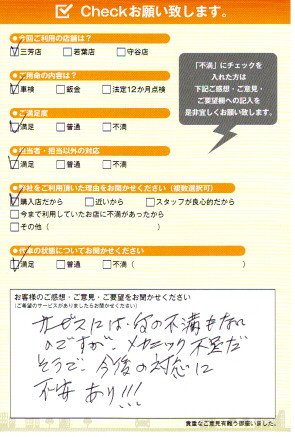 Checkお願い致します。
今回ご利用の店舗は？
三芳店 若葉店 守谷店
ご用命の内容は？
車検 鈑金 法定12か月点検
ご満足度
満足 普通 不満
担当者・担当以外の対応
満足 普通 不満
弊社をご利用頂いた理由をお聞かせください（複数選択可）
購入店だから 近いから スタッフが良心的だから
今まで利用していたお店に不満があったから
その他（ ）
代車の状態についてお聞かせください
満足 普通 不満（ ）
「不満」にチェックを
入れた方は
下記ご感想・ご意見・
ご要望欄への記入を
是非宜しくお願い致します。
お客様のご感想・ご意見・ご要望をお聞かせください
（ご希望のサービスがありましたらお聞かせください）
サービスには何の不満もない
のですが、メカニック不足だ
そうで、今後の対応に
不安あり!!!
貴重なご意見有難う御座いました。